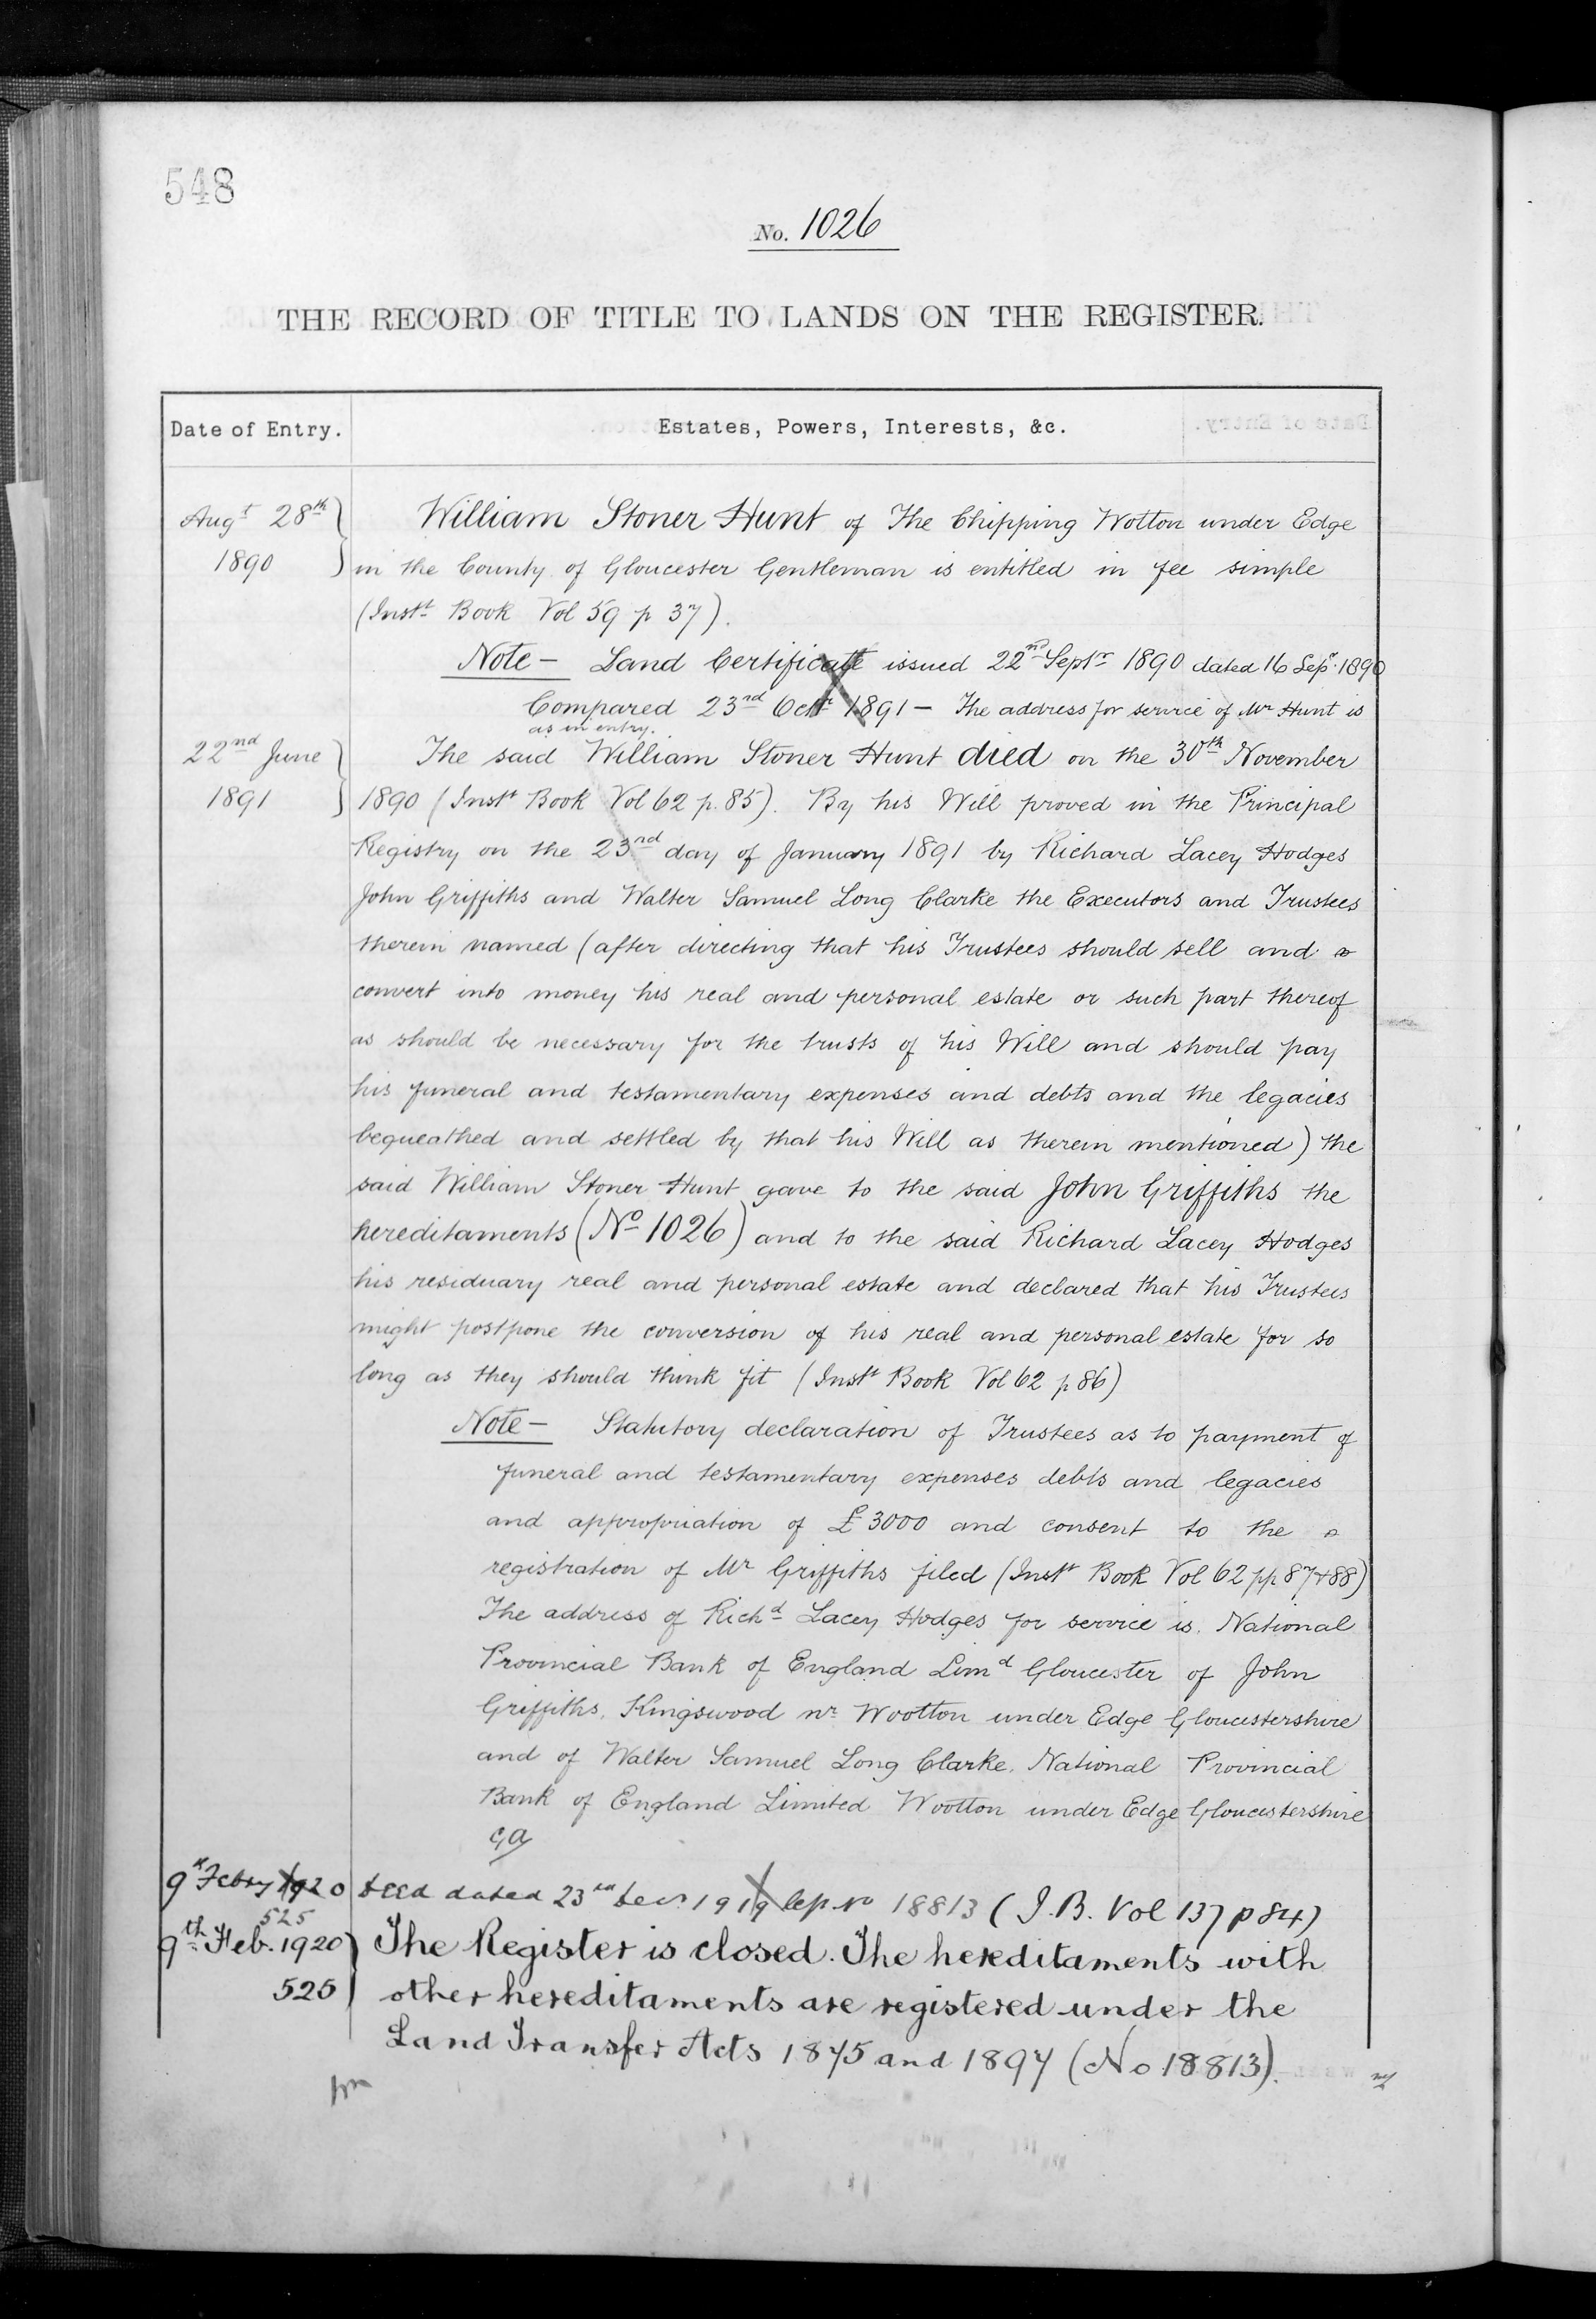 548
No. 1026
THE RECORD OF TITLE TO LANDS ON THE REGISTER.
Date of Entry.
Estates, Powers, Interests, &c.
Augt 28th
1890
William Stoner Hunt of The Chipping Wotton under Edge
in the County of Gloucester Gentleman is entitled in fee simple
(Instt Book Vol 59 p 37).
Note - Land Certificate issued 22nd Septr 1890 dated 16 Sepr. 1890
Compared 23rd Octr 1891 - The address for service of Mr Hunt is
as in entry.
22nd June
1891
The said William Stoner Hunt died on the 30th November
1890 (Instt Book Vol 62 p. 85). By his Will proved in the Principal
Registry on the 23rd day of January 1891 by Richard Lacey Hodges
John Griffiths and Walter Samuel Long Clarke the Executors and Trustees
therein named (after directing that his Trustees should sell and
convert into money his real and personal estate or such part thereof
as should be necessary for the trusts of his Will and should pay
his funeral and testamentary expenses and debts and the legacies
bequeathed and settled by that his Will as therein mentioned) the
said William Stoner Hunt gave to the said John Griffiths the
hereditaments (No 1026) and to the said Richard Lacey Hodges
his residuary real and personal estate and declared that his Trustees
might postpone the conversion of his real and personal estate for so
long as they should think fit (Instt Book Vol 62 p 86)
Note - Statutory declaration of Trustees as to payment of
funeral and testamentary expenses debts and legacies
and appropriation of £3000 and consent to the
registration of Mr Griffiths filed (Instt Book Vol 62 pp 87 & 88)
The address of Richd Lacey Hodges for service is. National
Provincial Bank of England Limd Gloucester of John
Griffiths, Kingswood nr Wootton under Edge Gloucestershire
and of Walter Samuel Long Clarke, National Provincial
Bank of England Limited Wootton under Edge Gloucestershire
9th Febry 1920
525
deed dated 23rd Decr 1919 No 18813 (I.B. Vol 137 p 84)
9th Feb. 1920
525
The Register is closed. The hereditaments with
other hereditaments are registered under the
Land Transfer Acts 1875 and 1897 (No 18813).